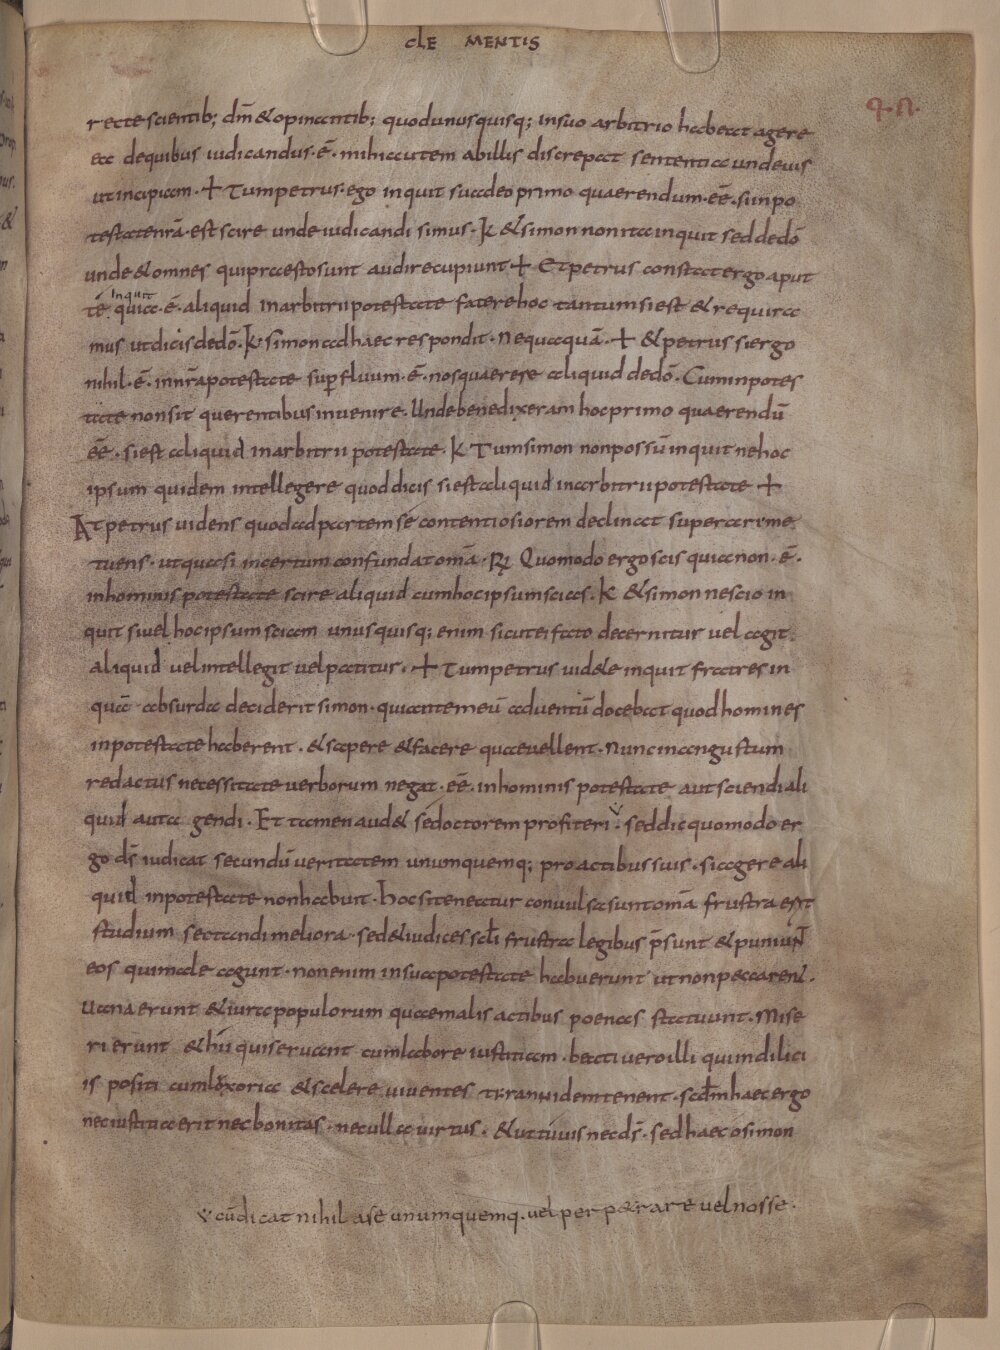 CLE MENTIS
q. n.
recte scientib; dm̄ & opinantib; quod unusquisq; in suo arbitrio habeat agere
ea dequibus iudicandus · ē · mihi autem ab illis discrepat sententia unde uis
ut incipiam · + Tum petrus · ego inquit suadeo primo quaerendum · eē · si in po
testate nrā · est scire unde iudicandi simus · K & simon non ita inquit sed de dō
unde & omnes qui praesto sunt audire cupiunt + Et petrus constat ergo aput
inquit
tē quia · ē · aliquid in arbitrii potestate fatere hoc tantum si est & requira
mus ut dicis de dō · K · simon ad haec respondit · nequaquā · + & petrus si ergo
nihil · ē · in nr̄a potestate supfluum · ē · nos quaerere aliquid de dō · Cum in potes
tate non sit querentibus inuenire · Unde bene dixeram hoc primo quaerendū
eē · si est aliquid in arbitrii potestate · K Tum simon non possū inquit ne hoc
ipsum quidem intellegere quod dicis si est aliquid in arbitrii potestate +
At petrus uidens quod ad partem sé contentiosiorem declinat superari me
tuens · ut quasi incertum confundat omā · R Quomodo ergo scis quia non · ē ·
in hominis potestate scire aliquid cum hoc ipsum scias · K & simon nescio in
quit si uel hoc ipsum sciam unusquisq; enim sicut ei fato decernitur uel agit
aliquid uel intellegit uel patitur · + Tum petrus uid&e inquit fratres in
quā absurda deciderit simon · qui ante meū aduentū docebat quod homines
in potestate haberent · & sapere & facere quae uellent · nunc in angustum
redactus necessitate uerborum negat · eē · in hominis potestate aut sciendi ali
quid aut a gendi · Et tamen aud& sé doctorem profiteri · sed dic quomodo er
go ds̄ iudicat secundū ueritatem unumquemq; pro actibus suis · si agere ali
quid in potestate non habuit · hoc si teneatur conuulsa sunt omā frustra erit
studium sectandi meliora · sed & iudices scl̄i frustra legibus p̄sunt & puniunt
eos qui male agunt · non enim in sua potestate habuerunt ut non peccaren& ·
Uana erunt & iura populorum quae malis actibus poenas statuunt · Mise
ri erunt & hii qui seruant cum labore iustitiam · beati uero illi qui in dilici
is positi cum loxoria & scelere uiuentes tirannidem tenent · scdm haec ergo
nec iustitia erit nec bonitas · nec ulla uirtus · & ut tu uis nec ds̄ · sed haec ó simon
cūdicat nihil a se unumquemq. uel per p&rare uel nosse ·